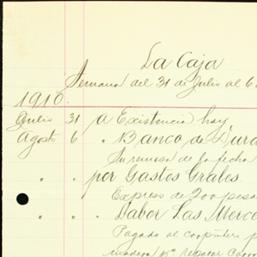 La Caja
Semana del 31 de Julio al 6
1910.
Julio 31 a Existencia hoy
Agost 6 " Banco de Dura
Su remesa de fo fecha
" " por Gastos Grales.
Express de 200 pesos
" " Labor Las Merce
Pagado al carpintero p
madera pa